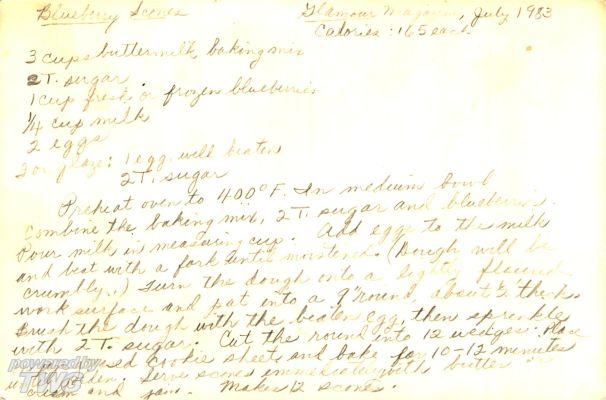 Blueberry Scones Glamour Magazine, July 1983
Calories: 165 each
3 cups buttermilk baking mix
2 T. sugar
1 cup fresh or frozen blueberries
1/4 cup milk
2 eggs
For glaze: 1 egg, well beaten
2 T. sugar
Preheat oven to 400°F. In medium bowl
combine the baking mix, 2 T. sugar and blueberries.
Pour milk in measuring cup. Add eggs to the milk
and beat with a fork until moistened. (Dough will be
crumbly.) Turn the dough onto a lightly floured
work surface and pat into a 9" round, about 1/2" thick.
Brush the dough with the beaten egg, then sprinkle
with 2 T. sugar. Cut the round into 12 wedges. Place
cookie sheet, and bake for 10-12 minutes
golden. Serve scones immediately with butter
cream and jam. Makes 12 scones.
powered by
TWG